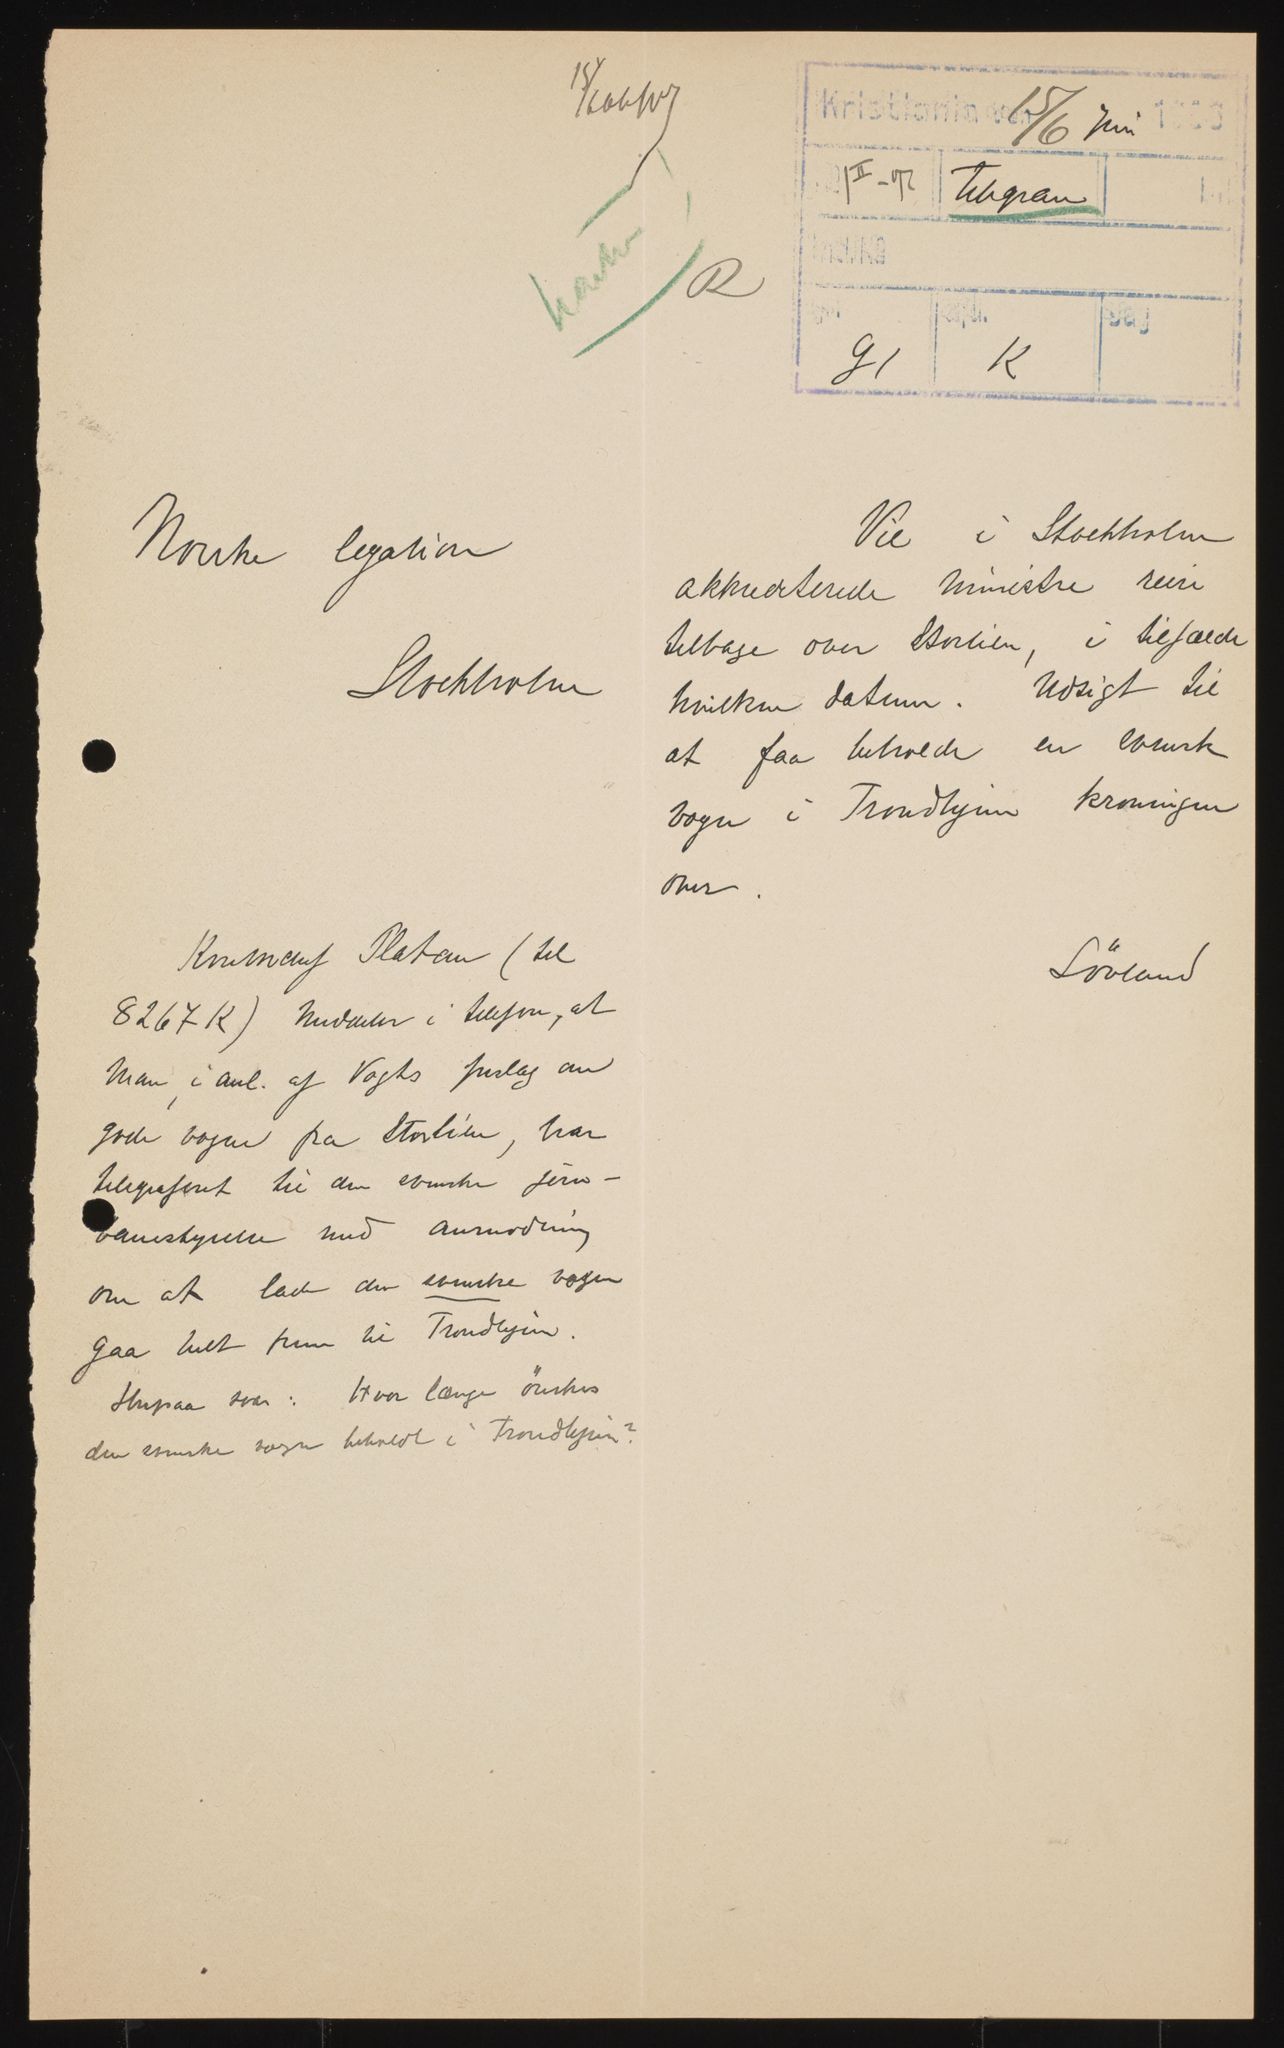 Kristiania den 15/6 juni 1906
telegram
R
g1 K
Norske legation
Stockholm
Vil i Stockholm
akkrediterede ministre reise
tilbage over Storlien, i tilfælde
hvilken datum. Udsigt til
at faa beholde en svensk
vogn i Trondhjem kroningen
over.
Lövland
Platou (til
8267 K) meddeler i telefon, at
man, i anl. af Vogts forslag om
gode vogne fra Storlien, har
telegraferet til den svenske jern-
banestyrelse med anmodning
om at lade den svenske vogn
gaa helt frem til Trondhjem.
Herpaa svar: Hvor længe önskes
den svenske vogn beholdt i Trondhjem?